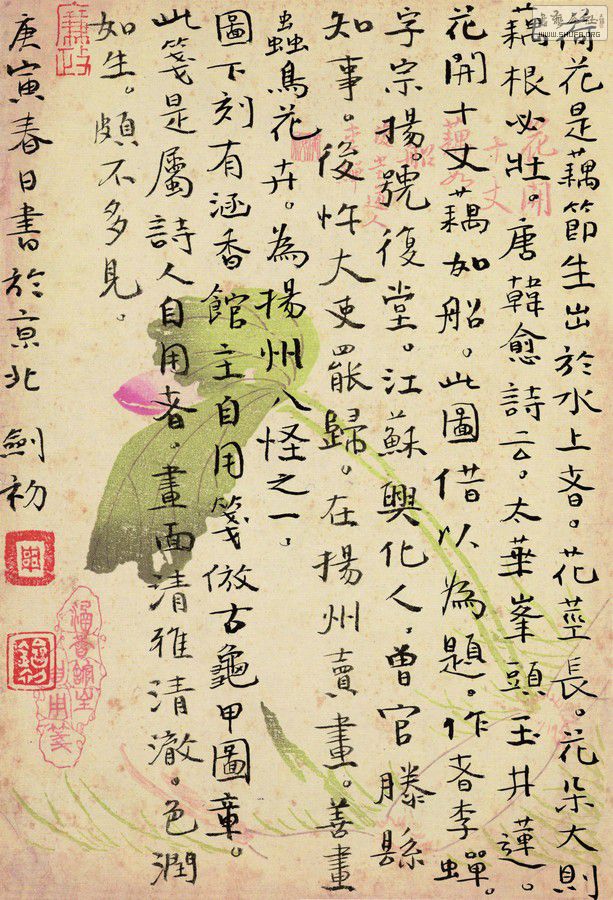 荷花是藕節生出於水上者。花莖長。花朵大則
藕根必壯。唐韓愈詩云。太華峯頭玉井蓮。
花開十丈藕如船。此圖借以為題。作者李蟬。
字宗揚。號復堂。江蘇興化人，曾官滕縣
知事。後忤大吏罷歸。在揚州賣畫。善畫
蟲鳥花卉。為揚州八怪之一。
圖下刻有涵香館主自用箋倣古龜甲圖章。
此箋是屬詩人自用者。畫面清雅清澈。色潤
如生。頗不多見。
庚寅春日書於京北 劍初
花開
十丈
藕如
船
涵香館主
自用箋
WWW.SHUFA.ORG